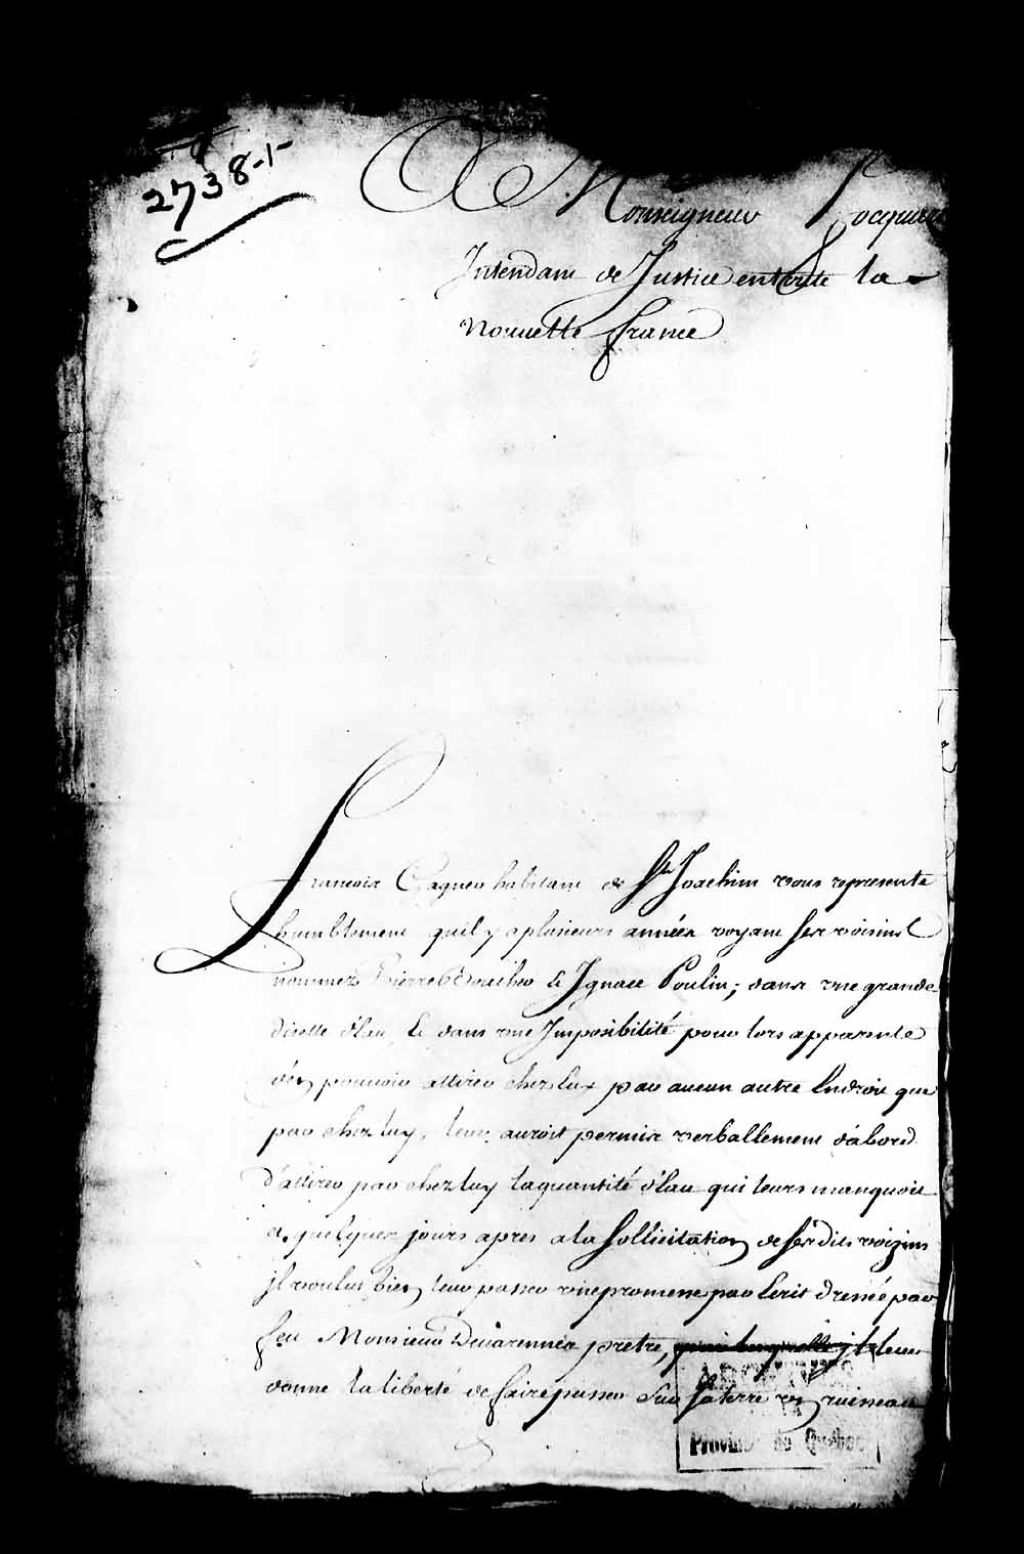 2738-1-
A Monseigneur Hocquart
Intendant de Justice en toute la
Nouvelle france
francois Gagnon habitant de St Joachim vous represente
humblement quil y a plusieurs années voyant ses voisins
nommez Pierre Boucher & Ignace Poulin; dans une grande
disette d'eau, & dans une Imposibilité pour lors apparente
d'en pouvoir attirer chez Eux par aucun autre Endroit que
par chez luy, leur auroit permis verballement d'abord
d'attirer par chez luy la quantité d'Eau qui leurs manquoit
et quelques jours apres a la Sollicitation de ses dits voizins
jl voulut bien leur passer une promesse par Ecrit dressée par
feu Monsieur Devarennes pretre, jl leur
donne la liberté de faire passer Sur Sa terre un ruisseau
ARCHIVES
Province de Québec